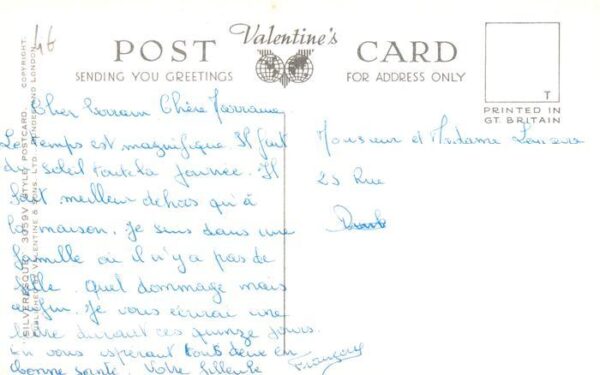 46
Valentine's
POST CARD
SENDING YOU GREETINGS
FOR ADDRESS ONLY
T
PRINTED IN
GT. BRITAIN
"SILVERESQUE" 3059V STYLE POSTCARD. COPYRIGHT.
PUBLISHED BY VALENTINE & SONS, LTD., DUNDEE AND LONDON.
Cher Parrain Chère Marraine
Le temps est magnifique Il fait
du soleil toute la journée. Il
fait meilleur dehors qu'à
la maison. Je suis dans une
famille où il n'y a pas de
fille. Quel dommage mais
enfin. Je vous écrirai une
lettre durant ces quinze jours.
En vous espérant tous deux en
bonne santé. Votre filleule
Françoise
Monsieur et Madame
23 Rue